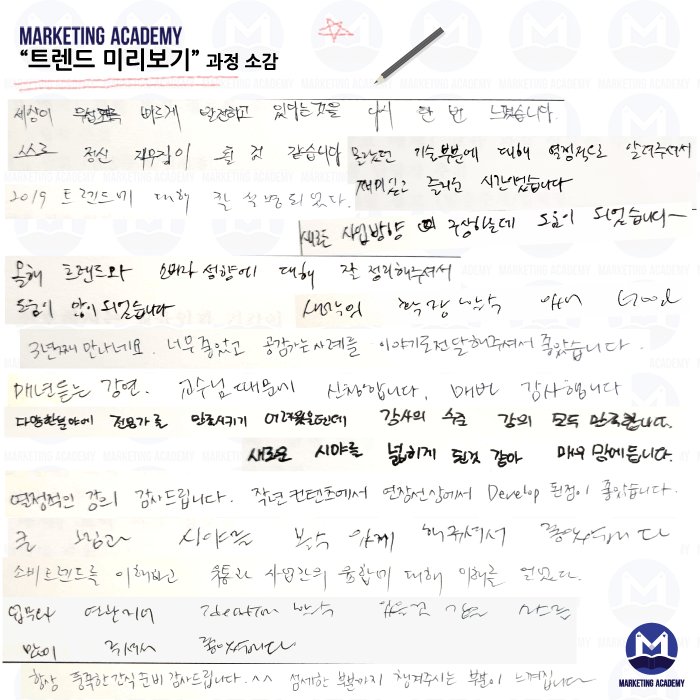 MARKETING ACADEMY
“트렌드 미리보기” 과정 소감
세상이 무섭게 빠르게 발전하고 있다는것을 다시 한 번 느꼈습니다.
스스로 정신 차려짐이 될 것 같습니다
몰랐던 기술부분에 대해 열정적으로 알려주셔서
재미있고 즐거운 시간이었습니다
2019 트렌드에 대해 잘 설명되었다.
새로운 사업방향 구상하는데 도움이 되었습니다~
올해 트렌드와 소비자 성향에 대해 잘 정리해주셔서
도움이 많이 되었습니다
생각의 확장 Good
3년째 만나네요. 너무 좋았고 공감가는 사례를 이야기로 전달해주셔서 좋았습니다.
매년듣는 강연. 교수님 때문에 신청합니다. 매번 감사합니다
다양한분야에 전문가를 만족시키기 어려웠을텐데 강사의 수준 강의 모두 만족합니다.
새로운 시야를 넓히게 된것 같아 매우 맘에듭니다.
열정적인 강의 감사드립니다. 작년 컨텐츠에서 연장선상에서 Develop 된점이 좋았습니다.
큰 그림과 시야를 볼수 있게 해주셔서 좋았습니다
소비트렌드를 이해하고 유통과 사업간의 융합에 대해 이해를 얻었다.
업무와 연관지어 Ideation 할수 있는것 같은
많이 주셔서 좋았습니다
항상 풍족한간식준비 감사드립니다.^^ 섬세한 부분까지 챙겨주시는 부분이 느껴집니다
MARKETING ACADEMY